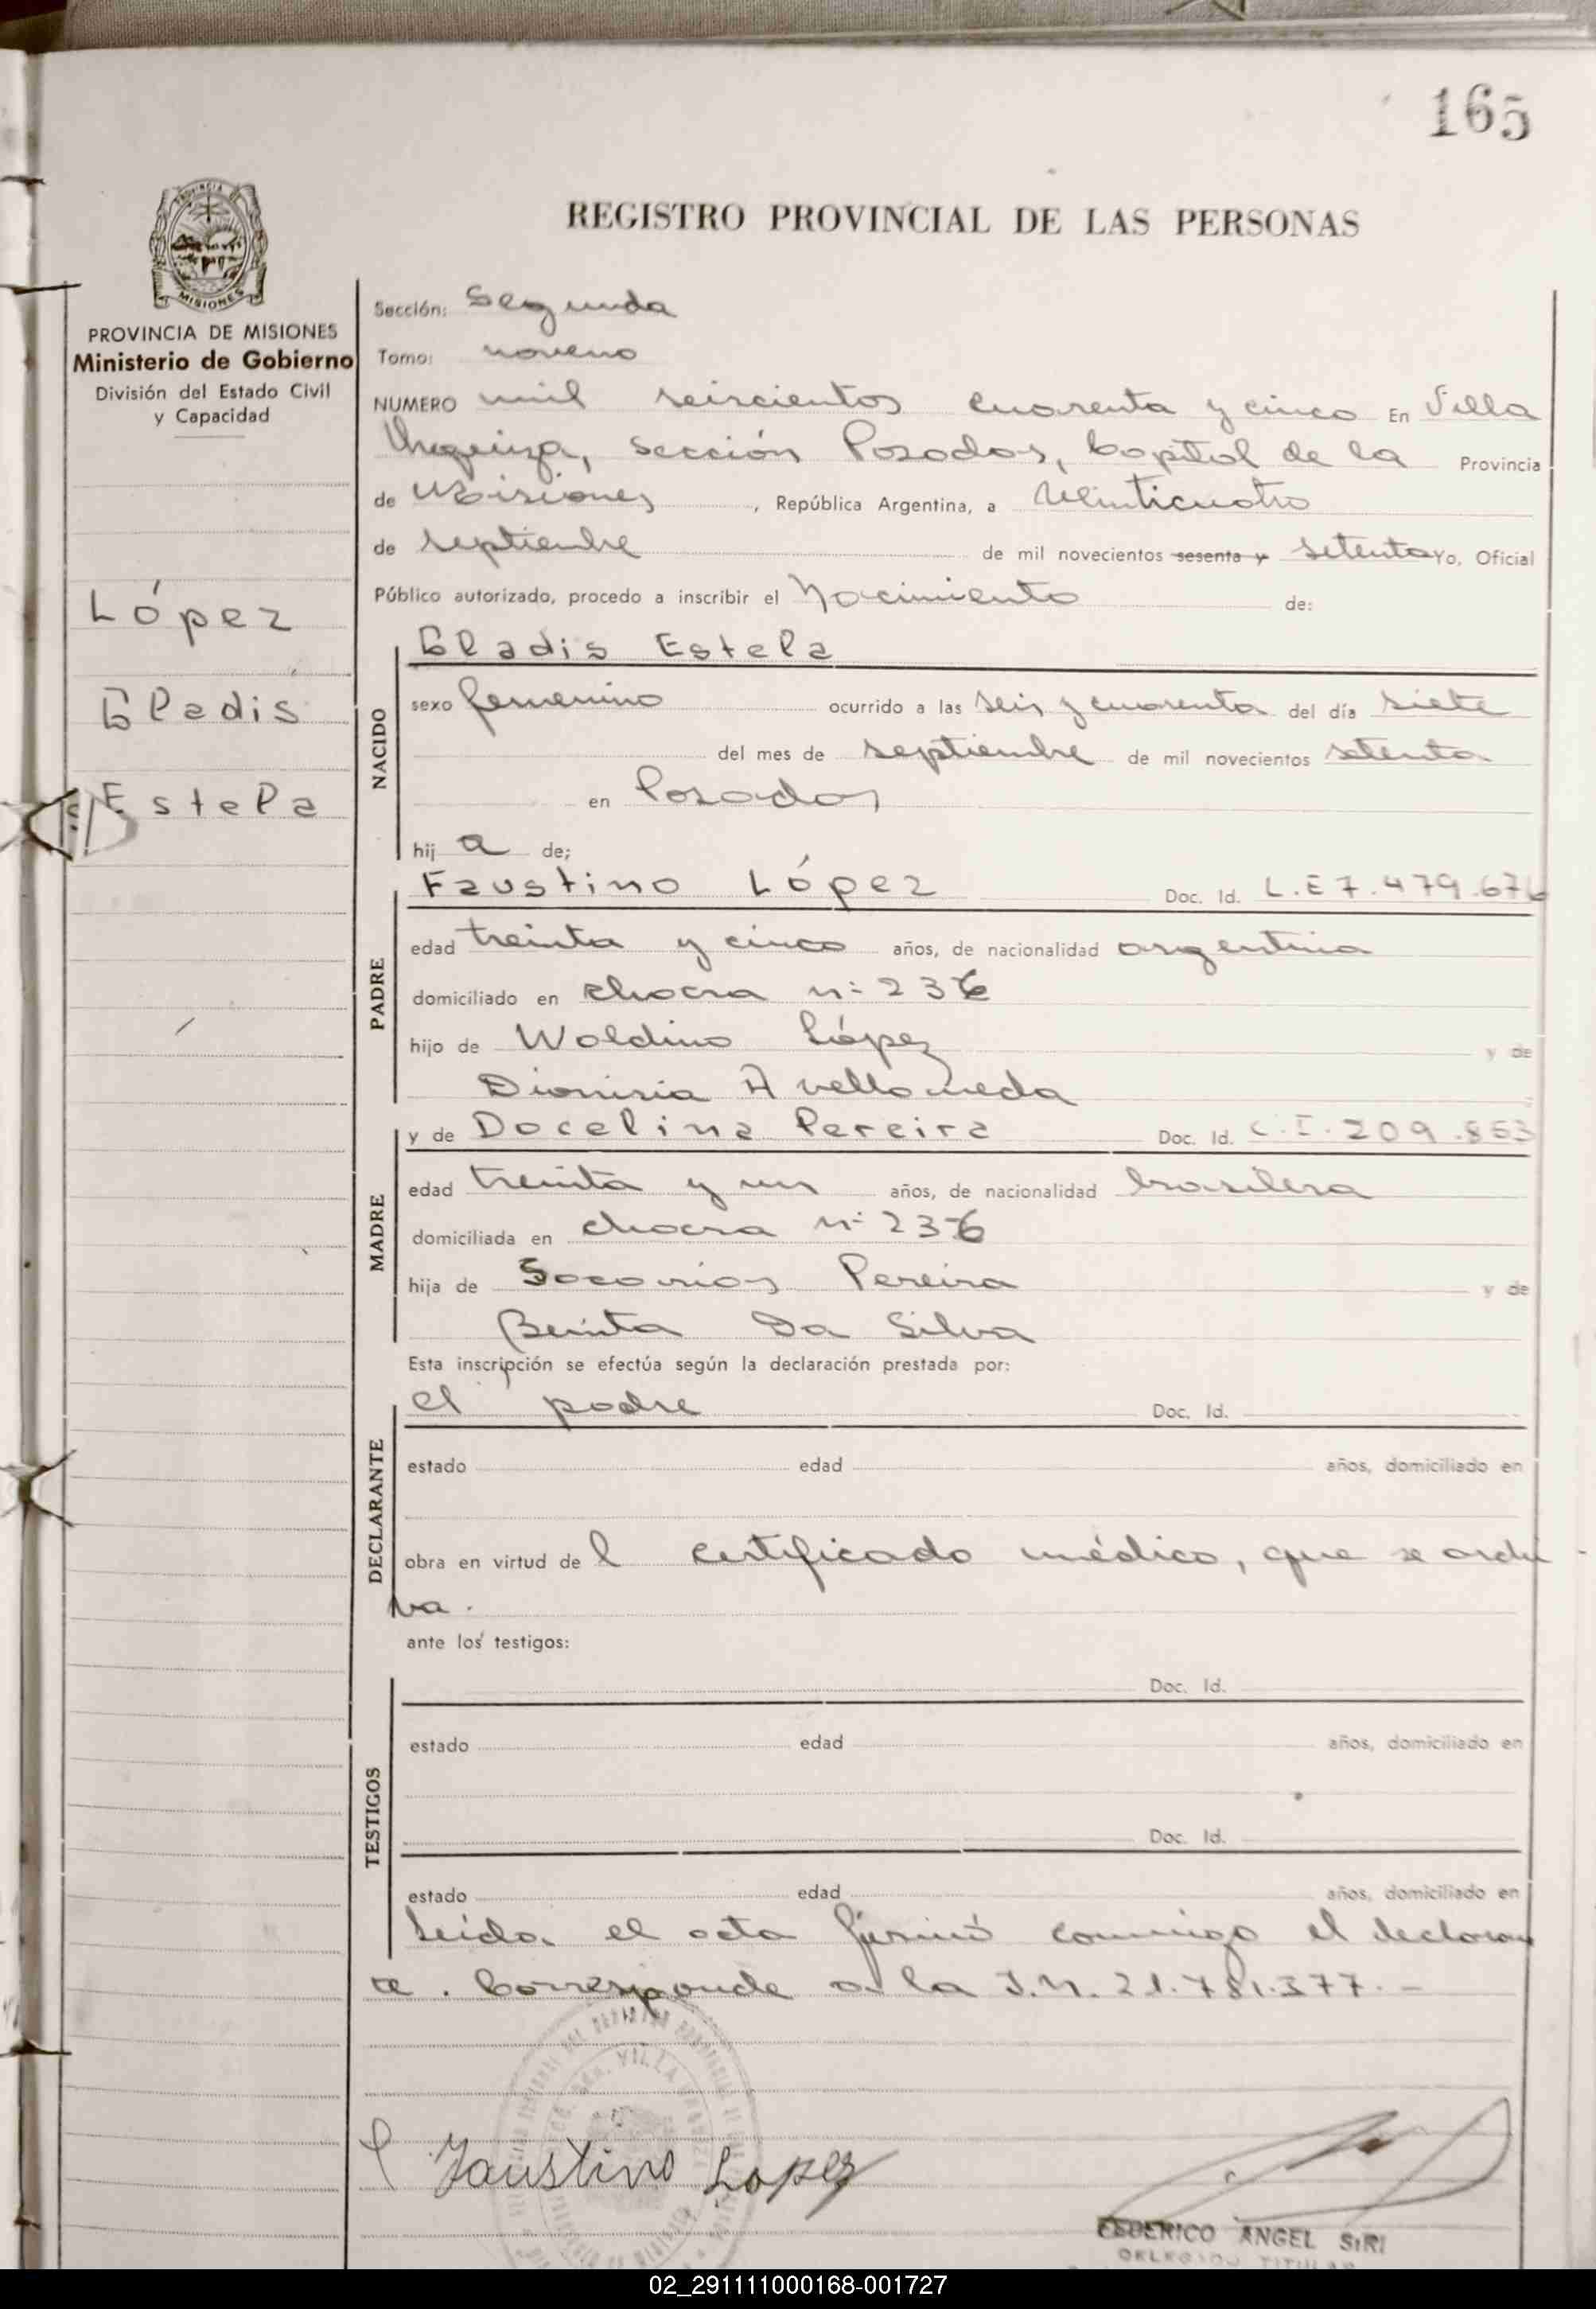 165
REGISTRO PROVINCIAL DE LAS PERSONAS
PROVINCIA DE MISIONES
Ministerio de Gobierno
División del Estado Civil
y Capacidad
López
Gladis
Estela
Sección: Segunda
Tomo: noveno
NUMERO mil seiscientos cuarenta y cinco En Villa
Urquiza, sección Posadas, Capital de la Provincia
de Misiones, República Argentina, a veinticuatro
de septiembre de mil novecientos sesenta y setenta Yo, Oficial
Público autorizado, procedo a inscribir el Nacimiento de:
NACIDO
Gladis Estela
sexo femenino ocurrido a las seis y cuarenta del día siete
del mes de septiembre de mil novecientos setenta
en Posadas
hij a de;
PADRE
Faustino López Doc. Id. L.E 7.479.676
edad treinta y cinco años, de nacionalidad argentina
domiciliado en chacra n: 236
hijo de Waldino López y de
Dionisia Avellaneda
MADRE
y de Docelina Pereira Doc. Id. C.I. 209.853
edad treinta y un años, de nacionalidad brasilera
domiciliada en chacra n: 236
hija de Pereira y de
Benita Da Silva
Esta inscripción se efectúa según la declaración prestada por:
DECLARANTE
el padre Doc. Id.
estado edad años, domiciliado en
obra en virtud de l certificado médico, que se archi-
va.
ante los testigos:
TESTIGOS
Doc. Id.
estado edad años, domiciliado en
Doc. Id.
estado edad años, domiciliado en
Leída el acta firmó conmigo el declaran
te. Corresponde a la I.N. 21.781.377.-
Faustino Lopez
FEDERICO ANGEL SIRI
DELEGADO TITULAR
02_291111000168-001727